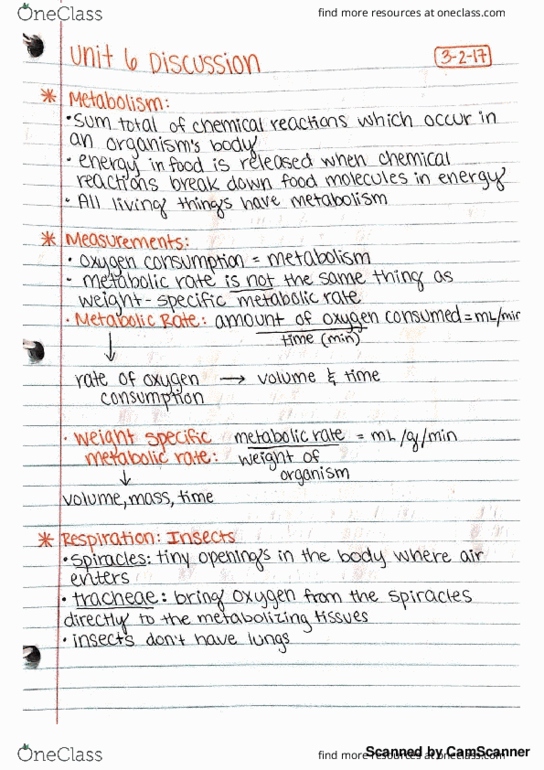 OneClass
find more resources at oneclass.com
Unit 6 Discussion
3-2-17
* Metabolism:
• Sum total of chemical reactions which occur in
an organism's body
• energy in food is released when chemical
reactions break down food molecules in energy
• All living things have metabolism
* Measurements:
• oxygen consumption = metabolism
• metabolic rate is not the same thing as
weight-specific metabolic rate
• Metabolic Rate: amount of oxygen consumed = mL/min
time (min)
↓
rate of oxygen → volume & time
consumption
• weight specific metabolic rate = mL/g/min
metabolic rate: weight of
↓ organism
volume, mass, time
* Respiration: Insects
• Spiracles: tiny openings in the body where air
enters
• tracheae: bring oxygen from the spiracles
directly to the metabolizing tissues
• insects don't have lungs
OneClass
find more resources at oneclass.com
Scanned by CamScanner